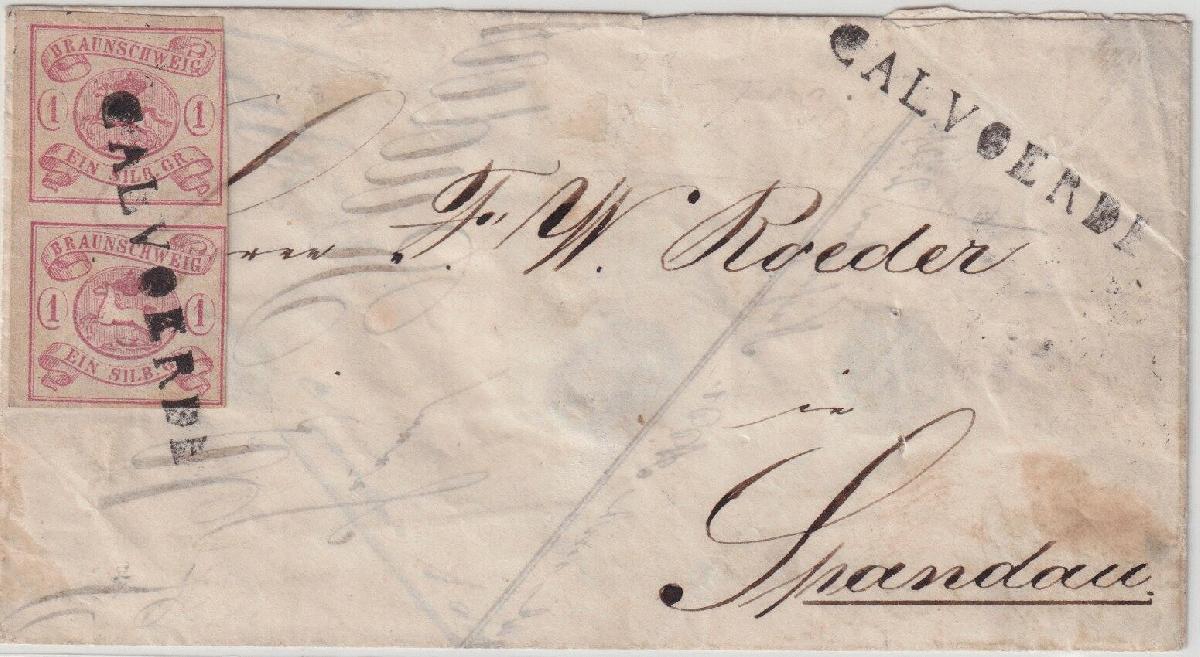 BRAUNSCHWEIG
1 1
EIN SILB. GR.
BRAUNSCHWEIG
1 1
EIN SILB.
CALVOERDE
CALVOERDE
F. W. Roeder
in
Spandau.